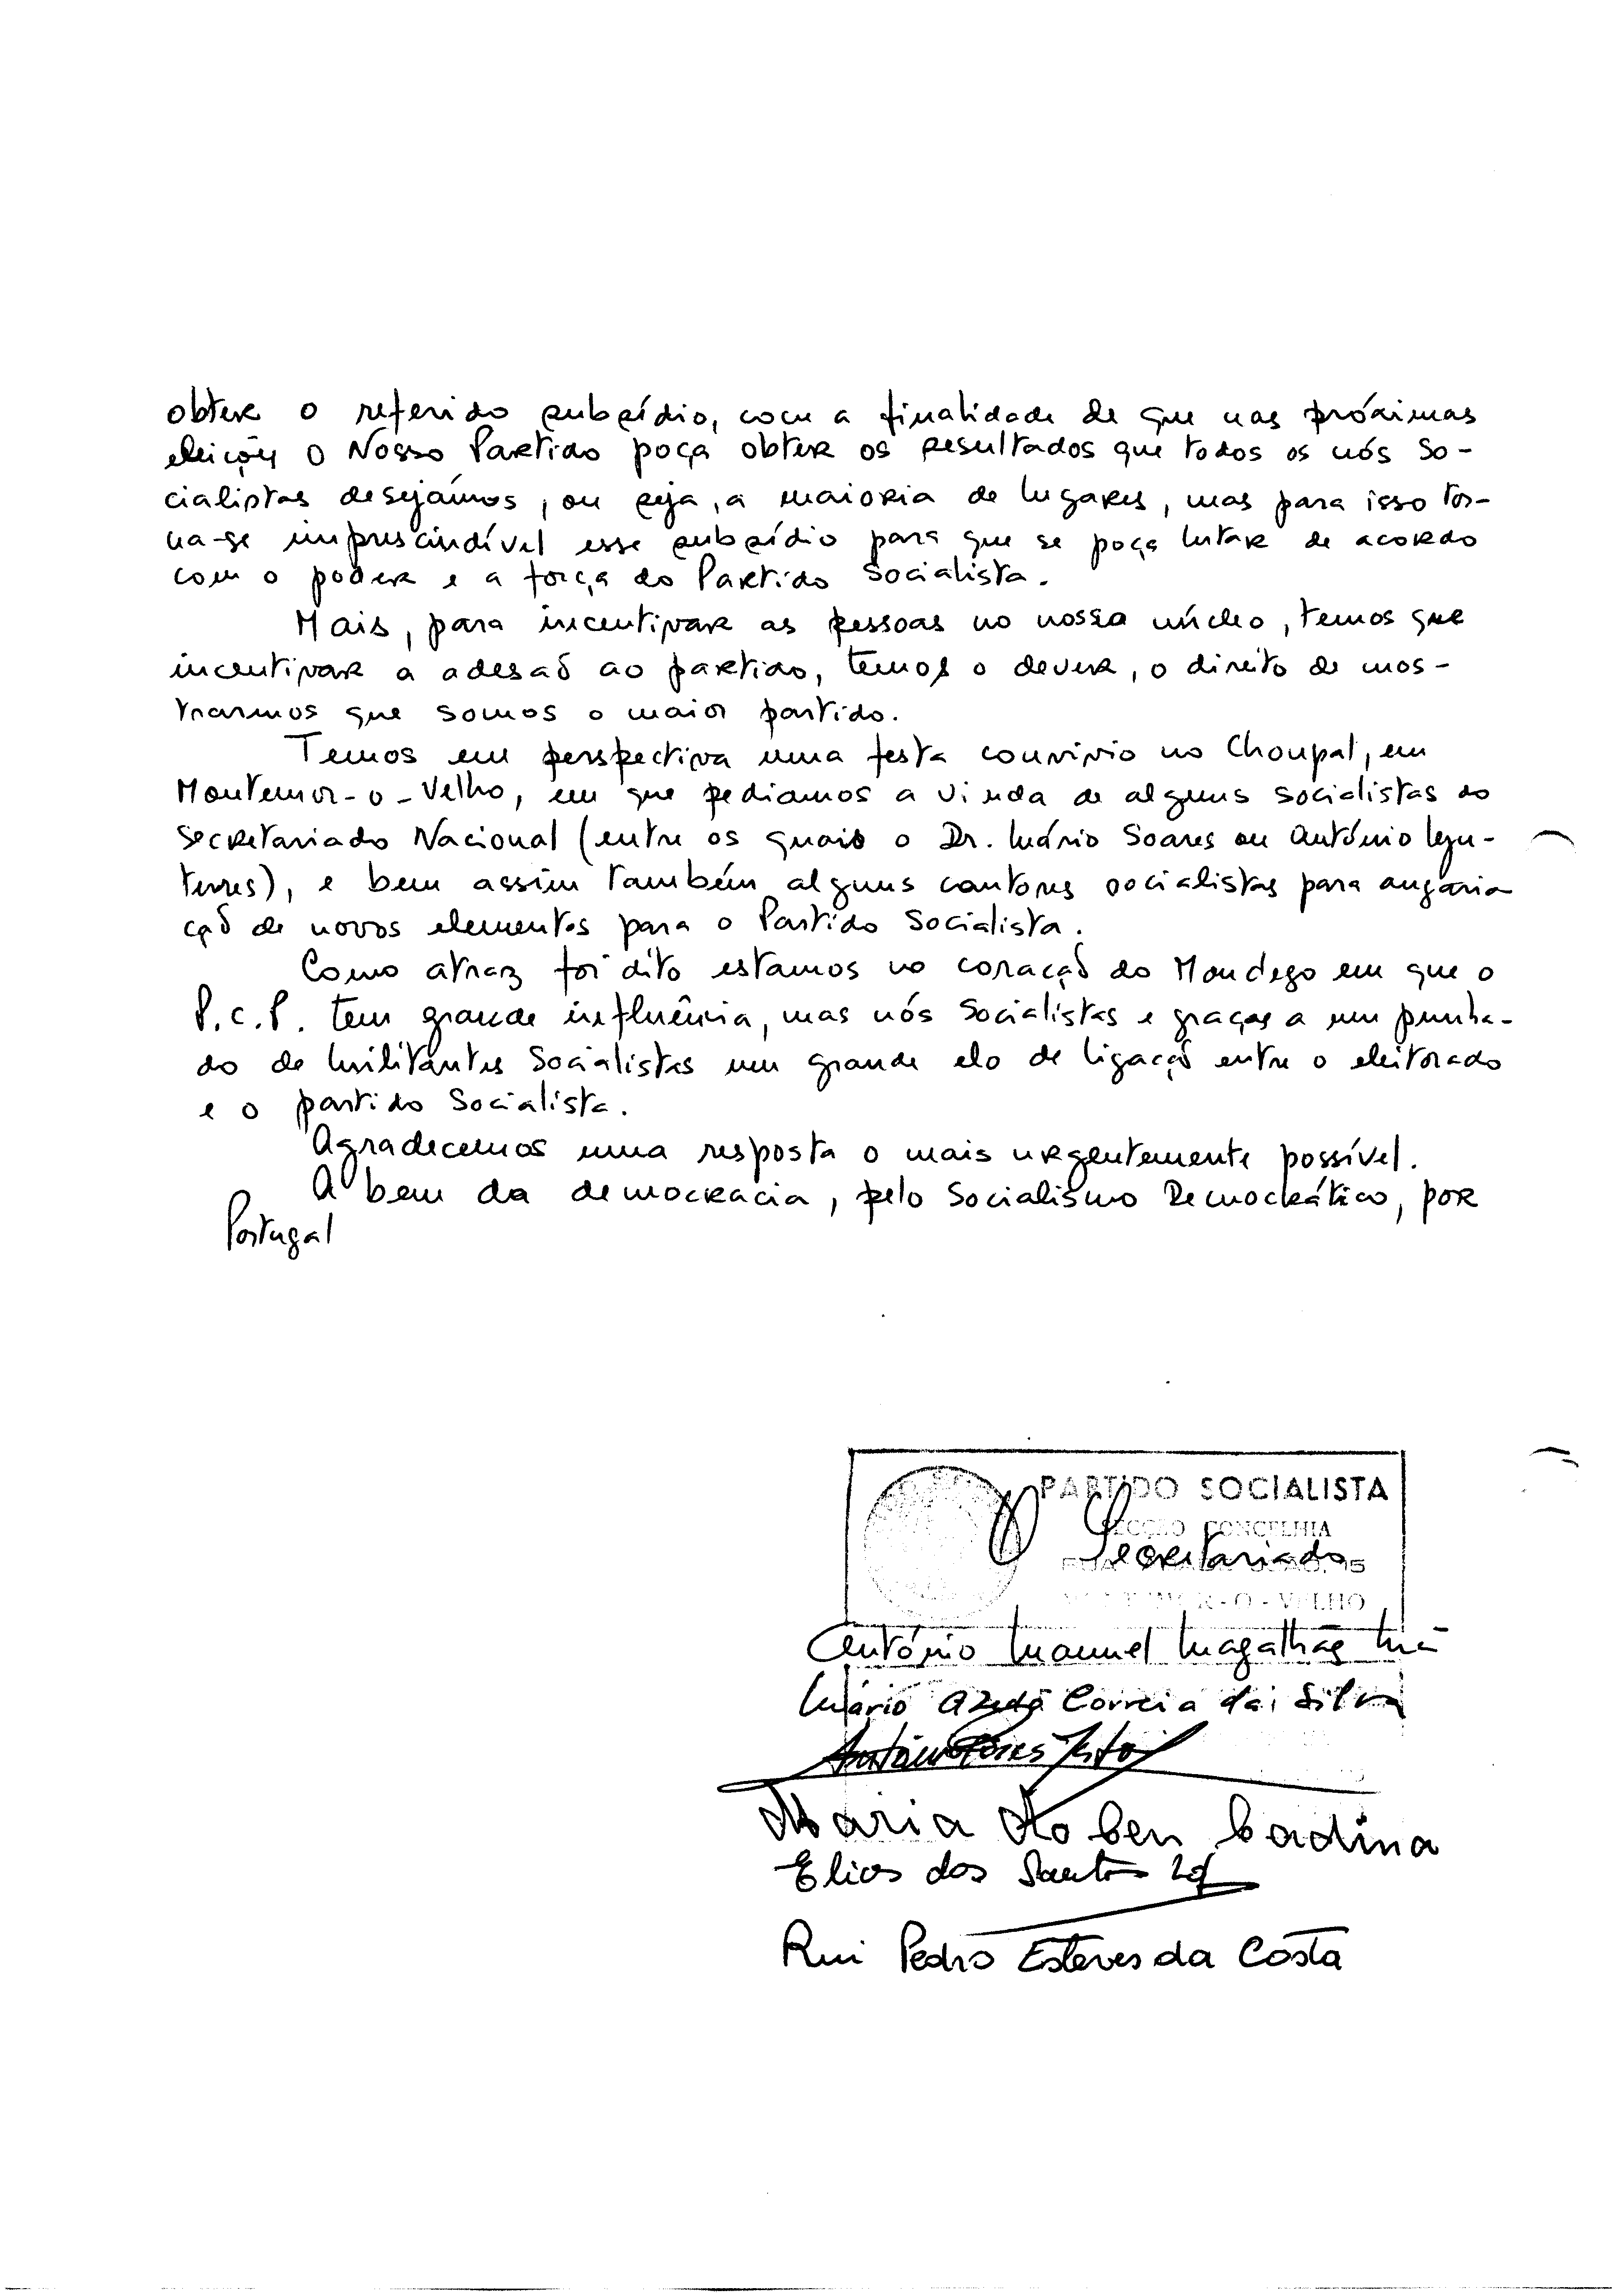 obter o referido subsídio, com a finalidade de que nas próximas
eleições o Nosso Partido poça obter os resultados que todos os nós So-
cialistas desejámos, ou seja, a maioria de lugares, mas para isso tor-
na-se imprescindível esse subsídio para que se poça lutar de acordo
com o poder e a força do Partido Socialista.
Mais, para incentivar as pessoas no nosso núcleo, temos que
incentivar a adesaõ ao partido, temos o dever, o direito de mos-
trarmos que somos o maior partido.
Temos em perspectiva uma festa convivio no Choupal, em
Montemor-o-Velho, em que pediamos a vinda de alguns socialistas do
Secretariado Nacional (entre os quais o Dr. Mário Soares ou António Gu-
terres), e bem assim também alguns cantores socialistas para angaria
çaõ de novos elementos para o Partido Socialista.
Como atraz foi dito estamos no coraçaõ do Mondego em que o
P.C.P. tem grande influência, mas nós Socialistas e graças a um punha-
do de Militantes Socialistas um grande elo de ligaçaõ entre o eleitorado
e o partido Socialista.
Agradecemos uma resposta o mais urgentemente possível.
A bem da democracia, pelo Socialismo Democrático, por
Portugal
PARTIDO SOCIALISTA
SECÇÃO CONCELHIA
O Secretariado
MONTEMOR-O-VELHO
António Manuel Magalhães
Mário Correia da Silva
António
Maria
Elias dos Santos
Rui Pedro Esteves da Costa